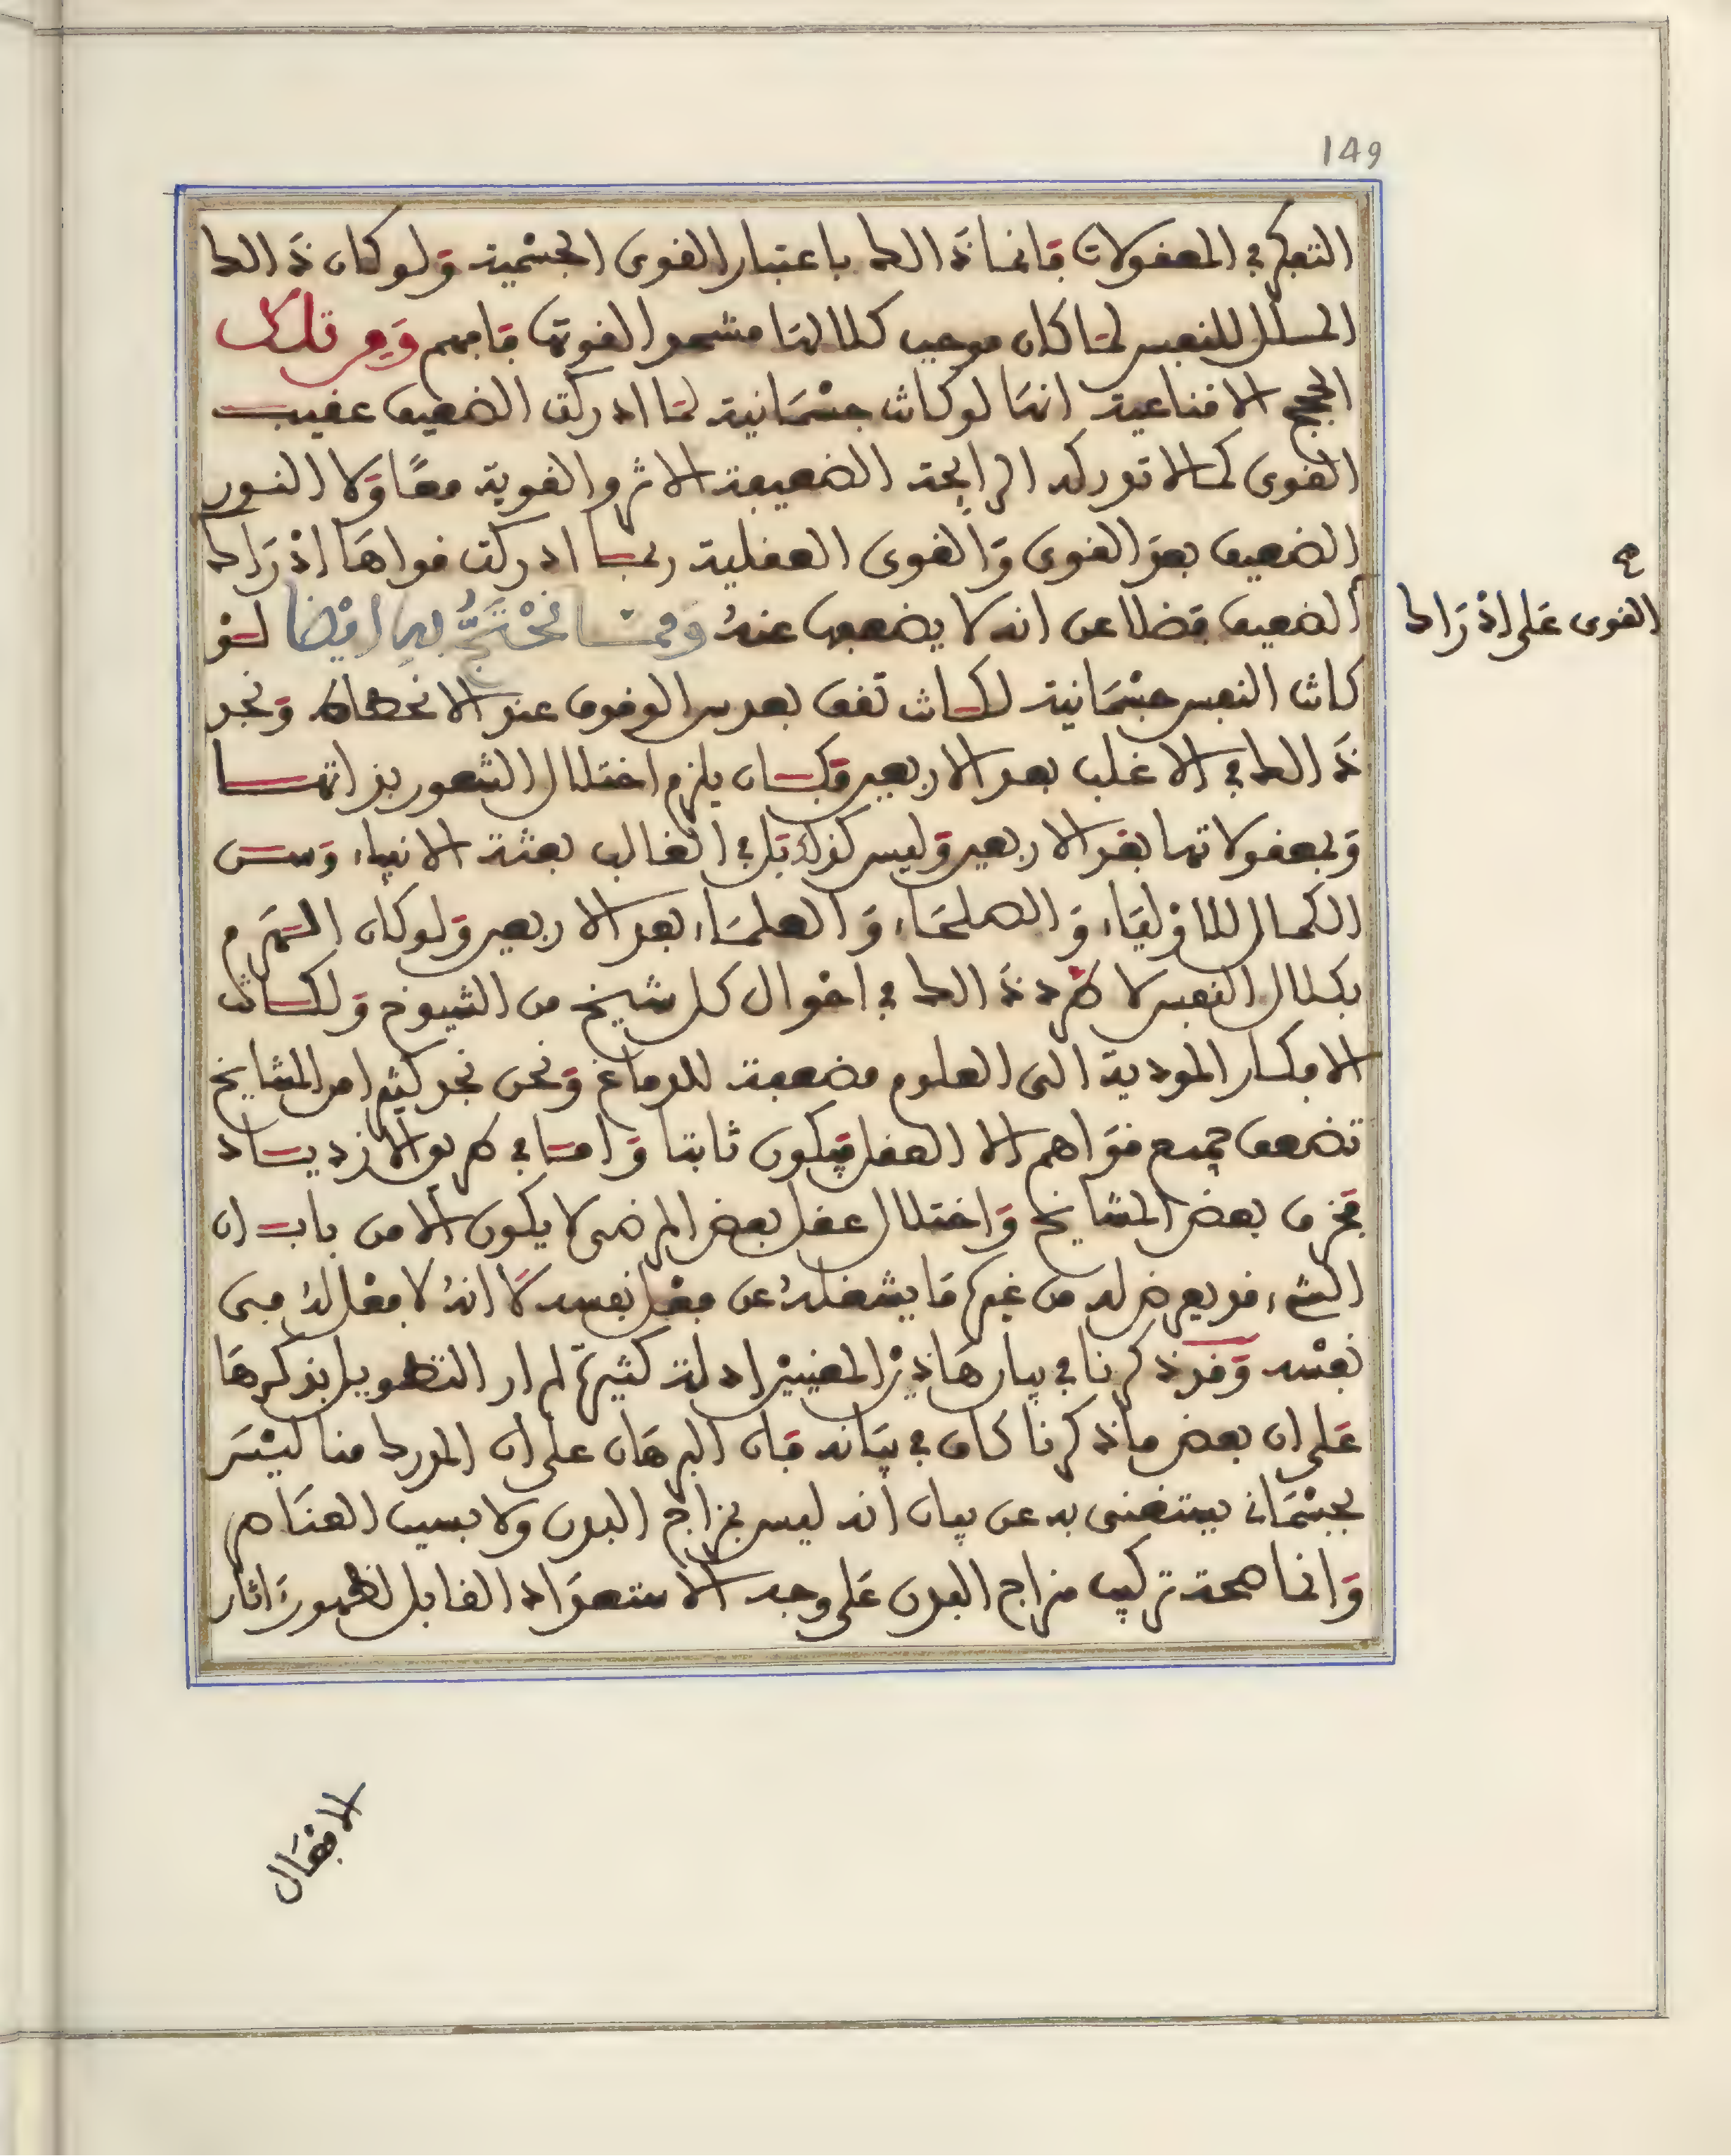 149
التفكر في المعقولات فانما ذالك باعتبار القوى الجسمية ولو كان ذالك
الملل للنفس لما كان موجب كلالها مشحذا لقوتها فافهم ومن تلك
الحجج الاقناعية انها لو كانت جسمانية لما ادركت الضعيف عقيب
القوى كما لا تدرك الرايحة الضعيفة الاثر والقوية معا ولا النور
الضعيف بعد القوى والقوى العقلية ربما ادركت قواها ادراك
القوى على ادراك
الضعيف فضلا عن انه لا يضعفها عنه ومما نحتج به ايضا لو
كانت النفس جسمانية لكانت تقف بعد سن الوقوف عند الانحطاط ونجد
ذالك في الاغلب بعد الاربعين وكان يلزم اختلال الشعور بذاتها
وبمعقولاتها بعد الاربعين وليس كذلك بل في الغالب بعثة الانبياء وسن
الكمال للاولياء والصلحاء والعلماء بعد الاربعين ولو كان الهرم
بكلال النفس لاطرد ذالك في احوال كل شيخ من الشيوخ ولكانت
الافكار المودية الى العلوم مضعفة للدماغ ونحن نجد كثيرا من المشايخ
تضعف جميع قواهم الا العقل فيكون ثابتا واما في طريق الازدياد
فخرف بعض المشايخ واختلال عقل بعض المرضى لا يكون الا من باب ان
الشيء قد يعرض له من غيره ما يشغله عن فعل نفسه لا انه لا فعل له في
نفسه وقد ذكرنا في بيان هاذين المعنيين ادلة كثيرة لم ار التطويل بذكرها
على ان بعض ما ذكرنا كاف في بيانه فان البرهان على ان المدرك منا ليس
بجسماني يستغنى به عن بيان انه ليس بمزاج البدن ولا بسبب العناصر
وانما صحة تركيب مزاج البدن على وجه الاستعداد القابل لظهور اثار
الافعال